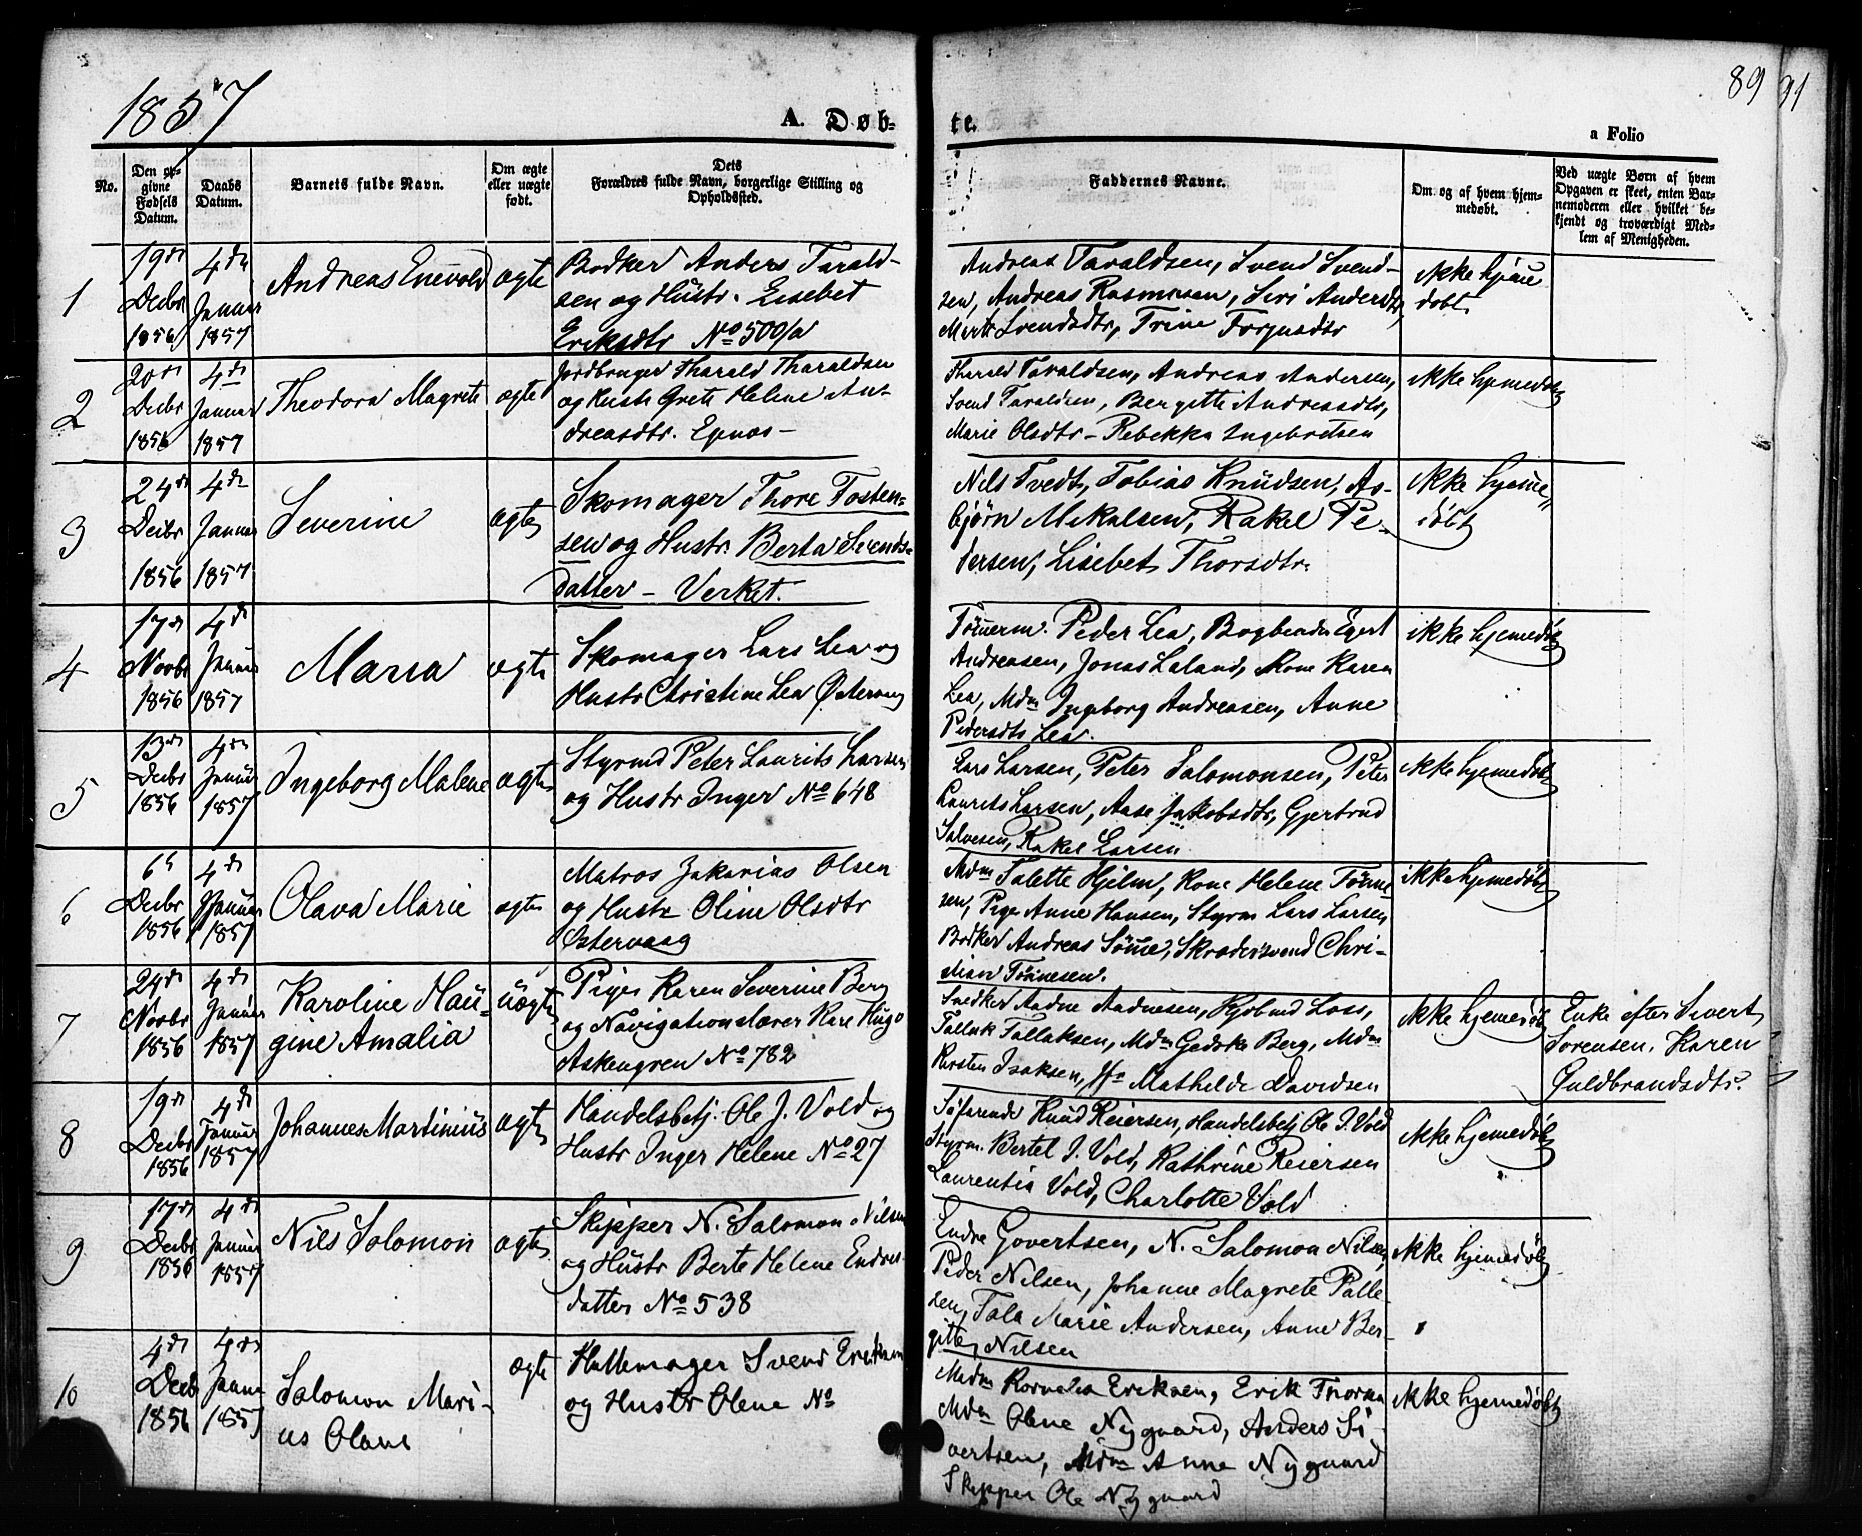 1857
89 91
A. Døb-
te.
a Folio
No.
Den op-
givne
Fødsels
Datum.
Daabs
Datum.
Barnets fulde Navn.
Om ægte
eller uægte
født.
Dets
Forældres fulde Navn, borgerlige Stilling og
Opholdssted.
Faddernes Navne.
Om og af hvem hjem-
medøbt.
Ved uægte Børn af hvem
Opgaven er skeet, enten Bar-
nemoderen eller hvilket be-
kjendt og troværdigt Med-
lem af Menigheden.
1
19de
Decbr
1856
4de
Januar
1857
Andreas Enevold
ægte
Bødker Anders Tarald-
sen og Hustr. Elisebet
Eriksdtr No 500/a
Andreas Taraldsen, Svend Svend-
sen, Andreas Rasmusen, Siri Andersdtr,
Svendsdtr, Trine
ikke hjem
døbt
2
20de
Decbr
1856
4de
Januar
1857
Theodora Magrete
ægte
Jordbruger Tharald Tharaldsen
og Hustr Grete Helene An-
dreasdtr. Egenæs-
Tharald Taraldsen, Andreas Andersen,
Svend Taraldsen, Bergitte Andreasdtr,
Marie Olsdtr- Rebekka Ingebretsen
ikke hjemedøbt
3
24de
Decbr
1856
4de
Januar
1857
Severine
ægte
Skomager Thore Tosten-
sen og Hustr. Berta Svends-
datter - Verket.
Nils Tvedt, Tobias Knudsen, As-
bjørn Mikalsen, Rakel Pe-
dersen, Lisebet Thorsdtr.
ikke hjeme
døbt
4
17de
Novbr
1856
4de
Januar
1857
Maria
ægte
Skomager Lars Lea og
Hustr Christine Lea Østervaag
Tømerm. Peder Lea, Bogbinder Egert
Andreasen, Jonas Laland, Kone Karen
Lea, Mdm Ingeborg Andreasen, Anne
Pedersdtr Lea.
ikke hjemedøbt
5
13de
Decbr
1856
4de
Januar
1857
Ingeborg Malene
ægte
Styrmd Peter Laurits Larsen
og Hustr Inger No 648
Lars Larsen, Peter Salomonsen, Peter
Laurits Larsen, Aase Jakobsdtr, Gjertrud
Salvesen, Rakel Larsen
ikke hjemedøbt
6
6te
Decbr
1856
4de
Januar
1857
Olava Marie
ægte
Matros Zakarias Olsen
og Hustr Oline Olsdtr
Østervaag
Mdm Talette Hjelm, Kone Helene Tønne
sen, Pige Anne Hansen, Styrm Lars Larsen,
Bødker Andreas Sømme, Skrædersvend Chri-
stian Tønnesen.
ikke hjemedøbt
7
24de
Novbr
1856
4de
Januar
1857
Karoline Hau-
gine Amalia
uægte
Pige Karen Severine Berg
og Navigationslærer Kare Hugo
Askengren No 782
Snedker Aadne Aadnesen, Loss,
Tallak Tallaksen, Mdm Gedske Berg, Mdm
Kirsten Isaksen, Jfr Mathilde Davidsen
ikke hjemedøbt
Enke efter Sivert
Sorensen, Karen
Guldbrandsdtr.
8
19de
Decbr
1856
4de
Januar
1857
Johannes Martinius
ægte
Handelsbetj. Ole J. Vold og
Hustr Inger Helene No 27
Søfarende Knud Reiersen, Handelsbetj Ole J. Vold
Styrm. Bertel J. Vold, Kathrine Reiersen
Laurentia Vold, Charlotte Vold
ikke hjemedøbt
9
17de
Decbr
1856
4de
Januar
1857
Nils Solomon
ægte
Skipper N. Salomon Nilsen
og Hustr Berte Helene Endres-
datter No 538
Endre Govertsen, N. Salomon Nilsen,
Peder Nilsen, Johanne Magrete Palle-
sen, Tala Marie Andersen, Anne Ber-
gitte Nilsen
ikke hjemedøbt
10
4de
Decb
1856
4de
Janua
1857
Salomon Mari-
us Olaus
ægte
Hattemager Svend Eriksen
og Hustr Olene No
Mdm Kornelia Eriksen, Erik
Mdm Olene Nygaard, Anders Si-
vertsen, Mdm Anne Nygaard
Skipper Ole Nygaard
ikke hjemedøbt